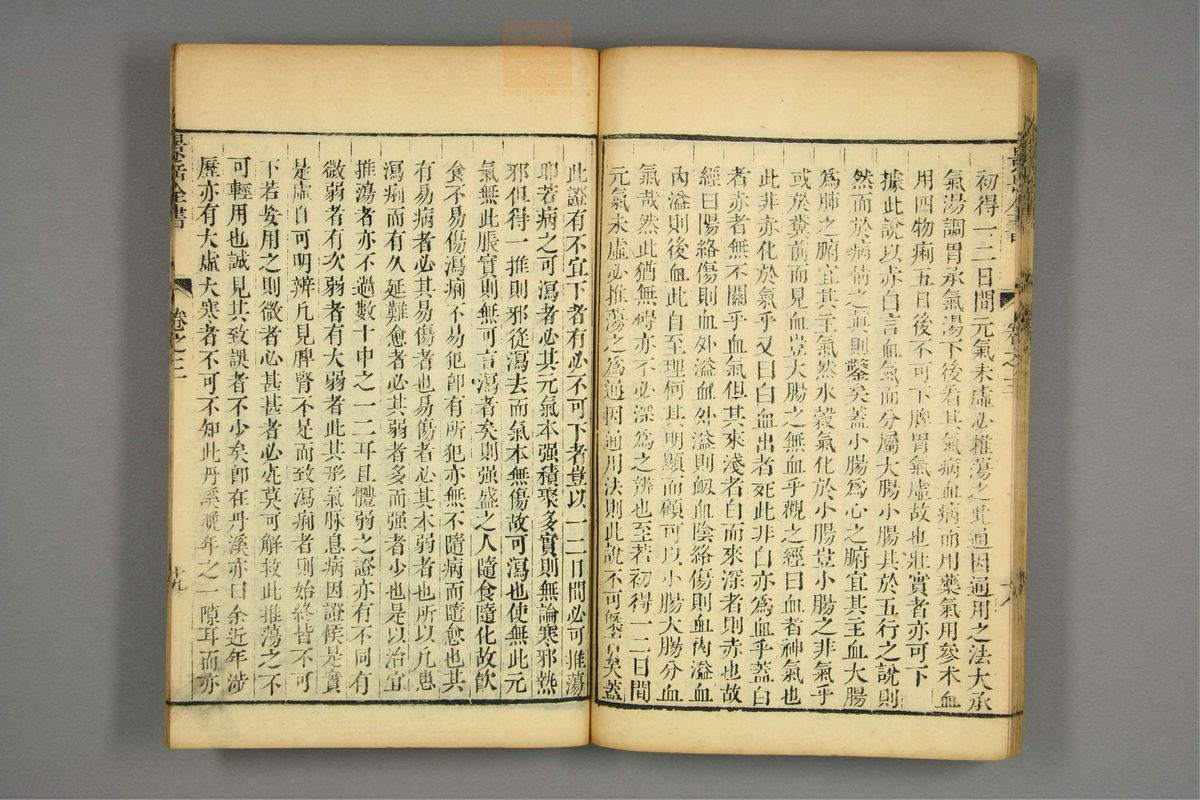 初得一二日間元氣未虛必推蕩之此通因通用之法大承
氣湯調胃承氣湯下後看其氣病血病而用藥氣用參术血
用四物痢五日後不可下脾胃氣虛故也壯實者亦可下
據此說以赤白言血氣而分屬大腸小腸其於五行之說則
然而於病情之真則鑿矣蓋小腸為心之腑宜其主血大腸
為肺之腑宜其主氣然水穀氣化於小腸豈小腸之非氣乎
或於糞前而見血豈大腸之無血乎觀之經曰血者神氣也
此非赤化於氣乎又曰白血出者死此非白亦為血乎蓋白
者赤者無不關乎血氣但其來淺者白而來深者則赤也故
經曰陽絡傷則血外溢血外溢則衂血陰絡傷則血內溢血
內溢則後血此自至理何其明顯而顧可以小腸大腸分血
氣哉然此猶無碍亦不必深為之辨也至若初得一二日間
元氣未虛必推蕩之為通因通用法則此說不可矣蓋
此證有不宜下者有必不可下者豈以一二日間必可推蕩
耶若病之可瀉者必其元氣本强積聚多實則無論寒邪熱
邪但得一推則邪從瀉去而氣本無傷故可瀉也使無此元
氣無此脹實則無可言瀉者矣則强盛之人隨食隨化故飲
食不易傷瀉痢不易犯即有所犯亦無不隨病而隨愈也其
有易病者必其易傷者也易傷者必其本弱者也所以凡患
瀉痢而有久延難愈者必其弱者多而强者少也是以治宜
推蕩者亦不過數十中之一二耳且體弱之證亦有不同有
微弱者有次弱者有大弱者此其形氣脉息病因證候是實
是虛自可明辨凡見脾腎不足而致瀉痢者則始終皆不可
下若妄用之則微者必甚甚者必死莫可解救此推蕩之不
可輕用也誠見其致誤者不少矣即在丹溪亦曰余近年涉
歷亦有大虛大寒者不可不知此丹溪晚年之一隙耳而亦
景岳全書
卷之二
十九
卷之